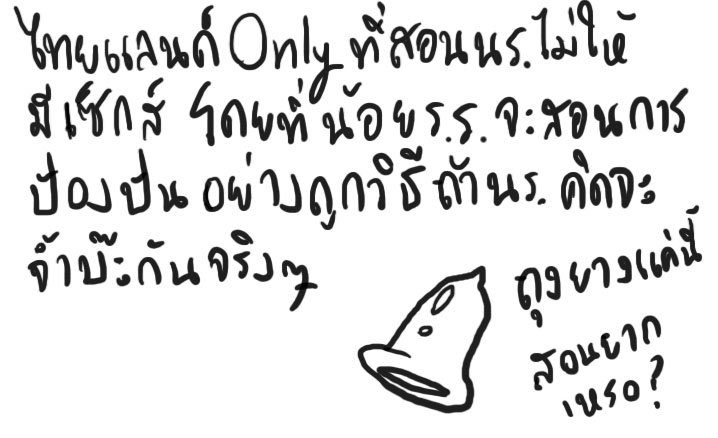 ไทยแลนด์ Only ที่สอนนร.ไม่ให้
มีเซ็กส์ โดยที่น้อยร.ร.จะสอนการ
ป้องปัน อย่างถูกวิธีถ้านร. คิดจะ
จ้ำบ๊ะกันจริงๆ
ถุงยางแค่นี้
สอนยาก
เหรอ?